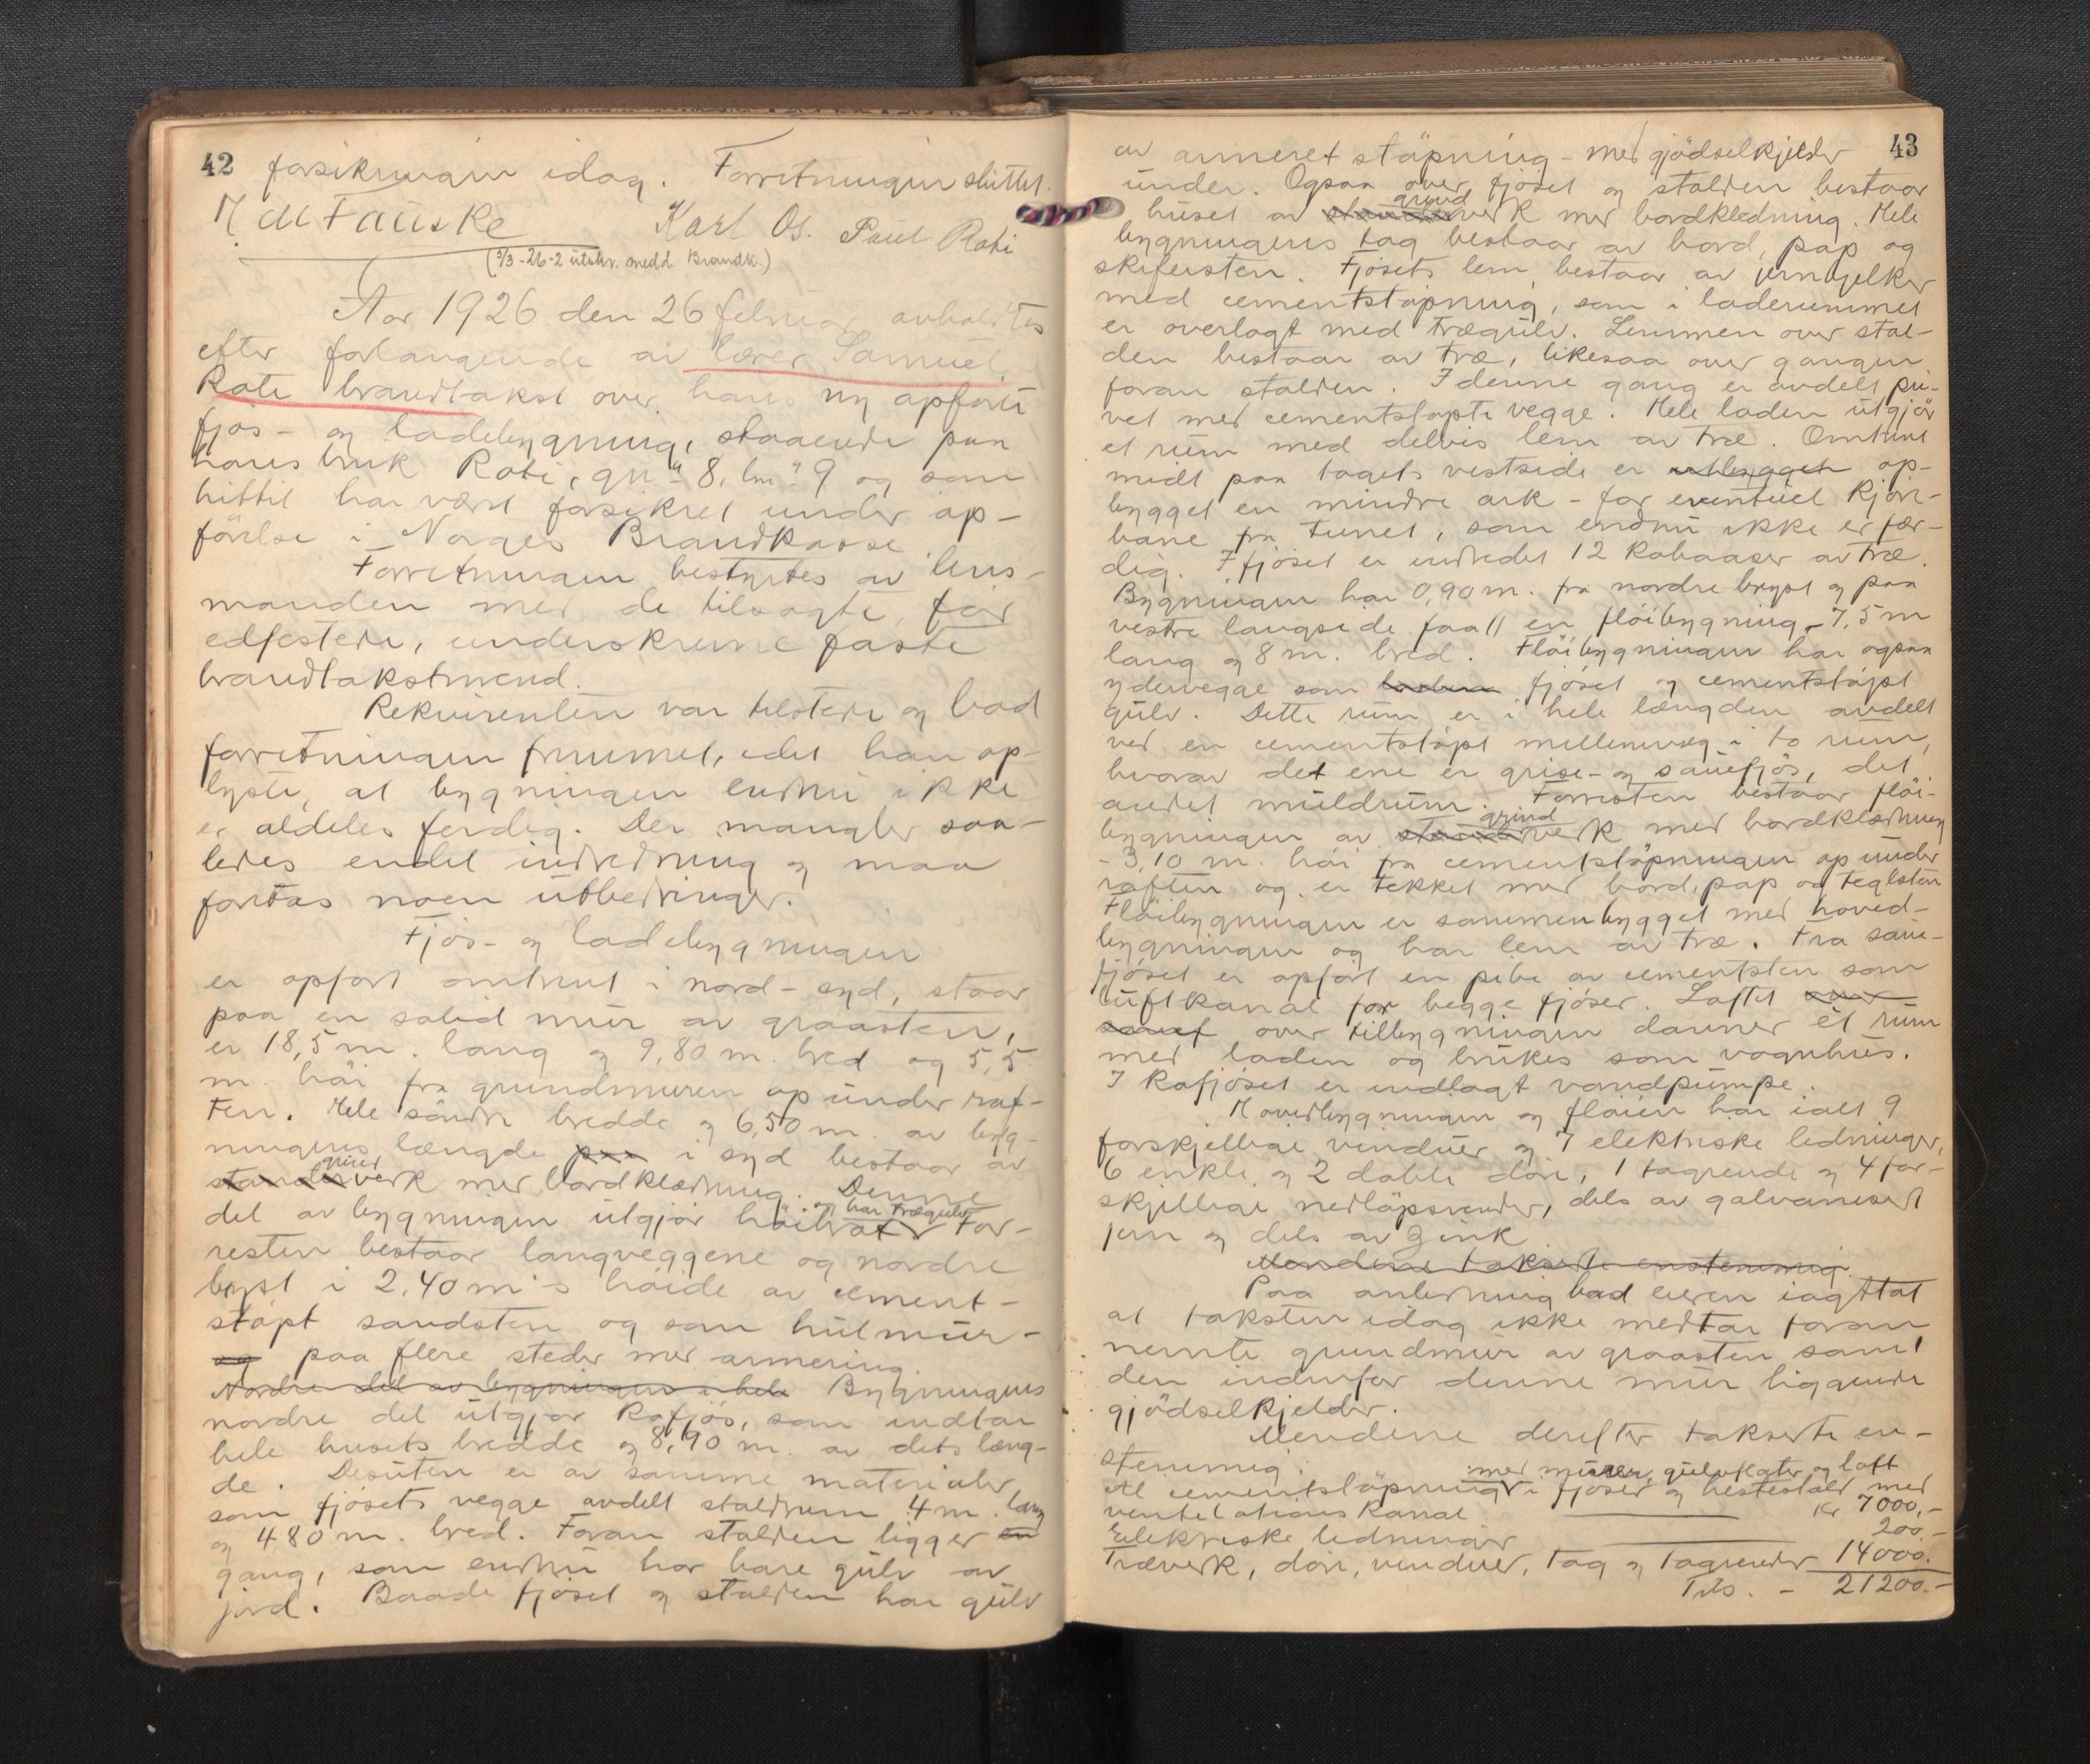 42 forsikringen idag. Forretningen sluttet.
Karl Os. Paul Rati
(3/3-26-2 utskr. medd Brandk.)
Aar 1926 den 26 februar avholdtes
efter forlangende av lærer Samuel
Rati brandtakst over hans ny opförte
fjøs- og ladebygning, staaende paa
hans bruk Rati, gn. 8, bn. 9 og som
hittil har været forsikret under op-
förelse i Norges Brandkasse.
Forretningen bestyrtes av lens-
manden med de tilsagte, før
edfestede, underskrevne faste
brandtakstmænd.
Rekvirenten var tilstede og bad
forretningen fremmet, idet han op-
lyste, at bygningen endnu ikke
er aldeles ferdig. Der mangler saa-
ledes endel indredning og maa
foretas noen utbedringer.
Fjös- og ladebygningen
er opfört omtrent i nord-syd, staar
paa en solid mur av graasten,
er 18,5 m. lang og 9,80 m. bred og 5,5
m. höi fra grundmuren op under raf-
ten. Hele söndre bredde og 6,50 m. av byg-
ningens længde paa i syd bestaar av
grind
standerverk med bordklædning. Denne
og har trægulv
del av bygningen utgjör höilaer For-
resten bestaar langveggene og nordre
bryst i 2,40 m's höide av cement-
stöpt sandsten og som hulmur-
og paa flere steder med armering.
Nordre del av bygningen i hele Bygningens
nordre del utgjör kofjös, som indtar
hele husets bredde og 8,90 m. av dets læng-
de. Desuten er av samme materialer
som fjösets vegge avdelt staldrum 4 m. lang
og 480 m. bred. Foran stalden ligger en
gang, som endnu har bare gulv av
jord. Baade fjöset og stalden har gulv
43
av armeret stöpning - med gjödselkjelder
under. Ogsaa over fjöset og stalden bestaar
grind
huset av standerverk med bordkledning. Hele
bygningens tag bestaar av bord, pap og
skifersten. Fjösets lem bestaar av jernbjelker
med cementstöpning, som i laderummet
er overlagt med trægulv. Lemmen over stal-
den bestaar av træ, likesaa over gangen
foran stalden. I denne gang er avdelt pri-
vet med cementstöpte vegge. Hele laden utgjör
et rum med delvis lem av træ. Omtrent
midt paa tagets vestside er utbygget op-
bygget en mindre ark - for eventuel kjöre-
bane fra tunet, som endnu ikke er fær-
dig. I fjöset er indredet 12 kobaaser av træ.
Bygningen har 0,90 m. fra nordre bryst og paa
vestre langside faatt en flöibygning - 7,5 m
lang og 8 m. bred. Flöibygningen har ogsaa
ydervegge som fjöset og cementstöpt
gulv. Dette rum er i hele længden avdelt
ved en cementstöpt mellemveg i to rum,
hvorav det ene er grise- og sauefjös, det
andet muldrum. Forresten bestaar flöi-
grind
bygningen av standerverk med bordklædning
- 3,10 m. höi fra cementstöpningen op under
raften og er tekket med bord, pap og teglsten
Flöibygningen er sammenbygget med hoved-
bygningen og har lem av træ. Fra saue-
fjöset er opfört en pibe av cementsten som
luftkanal for begge fjöser. Loftet over
sauef over tilbygningen danner et rum
med laden og brukes som vognhus.
I kofjöset er indlagt vandpumpe.
Hovedbygningen og flöien har ialt 9
forskjellige vinduer og 7 elektriske ledninger,
6 enkle og 2 doble döre, 1 tagrende og 4 for-
skjellige nedlöpsrender, dels av galvanisert
jern og dels av zink
Mendene takserte enstemmig.
Paa anledning bad eieren iagttat
at taksten idag ikke medtar foran
nevnte grundmur av graasten samt
den indenfor denne mur liggende
gjödselkjelder.
Mendene derefter takserte en-
stemmig:
med murer, gulvkater og loft
Al cementstöpning i fjöser og hestestald med
ventilations kanal kr 7000,-
Elektriske ledninger 200,-
Træverk, döre, vinduer, tag og tagrender 14000.
Tils. - 21200.-